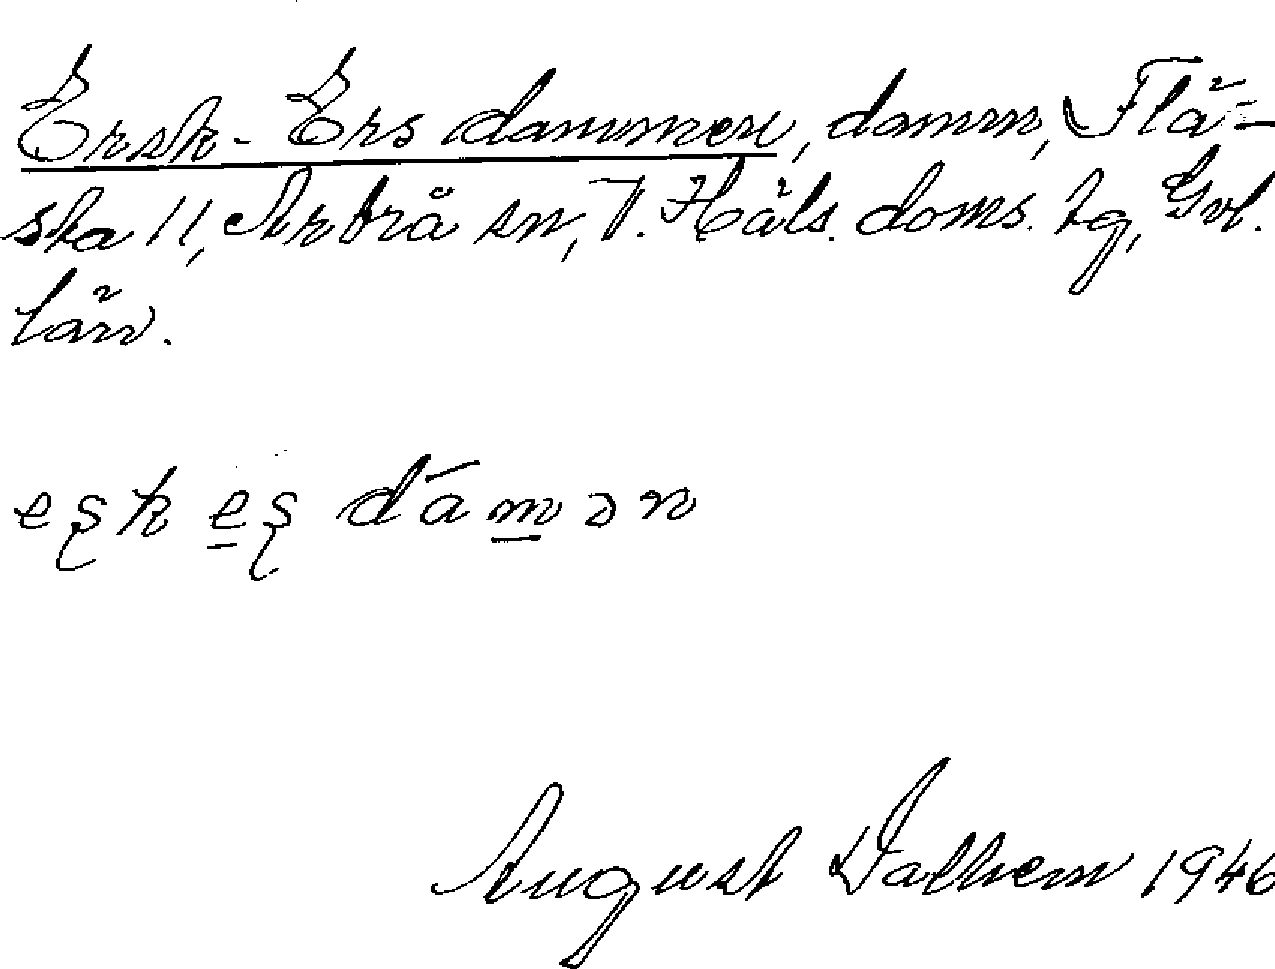 Ersk-Ers dammen, damm, Flä-
sta 11, Arbrå sn, V. Häls. doms. tg, Gvl.
län.
eʂk e̠ʂ dám̠ən
August Dalhem 1946